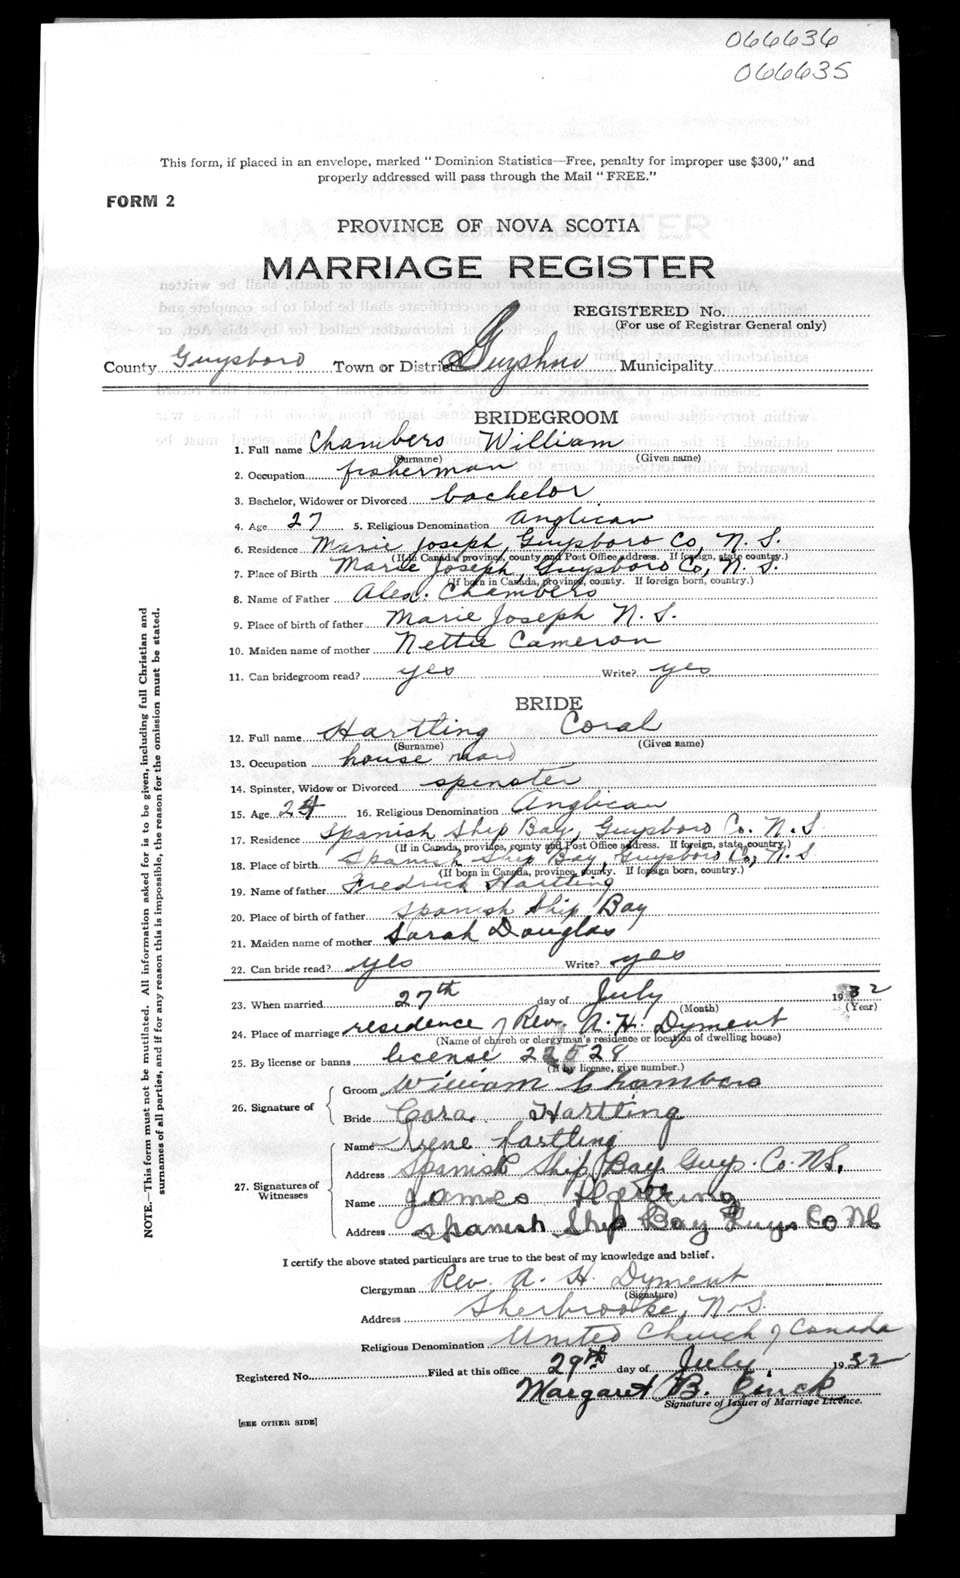 066636
066635
This form, if placed in an envelope, marked "Dominion Statistics—Free, penalty for improper use $300," and
properly addressed will pass through the Mail "FREE."
FORM 2
PROVINCE OF NOVA SCOTIA
MARRIAGE REGISTER
REGISTERED No.
(For use of Registrar General only)
County Guysboro Town or District Guysboro Municipality
BRIDEGROOM
1. Full name Chambers William
(Surname) (Given name)
2. Occupation fisherman
3. Bachelor, Widower or Divorced bachelor
4. Age 27 5. Religious Denomination Anglican
6. Residence Marie Joseph, Guysboro Co, N. S.
(If in Canada, province, county and Post Office address. If foreign, state country.)
7. Place of Birth Marie Joseph, Guysboro Co, N. S.
(If born in Canada, province, county. If foreign born, country.)
8. Name of Father Alex. Chambers
9. Place of birth of father Marie Joseph N. S.
10. Maiden name of mother Nettie Cameron
11. Can bridegroom read? yes Write? yes
BRIDE
12. Full name Hartling Coral
(Surname) (Given name)
13. Occupation house maid
14. Spinster, Widow or Divorced spinster
15. Age 24 16. Religious Denomination Anglican
17. Residence Spanish Ship Bay, Guysboro Co. N. S
(If in Canada, province, county and Post Office address. If foreign, state country.)
18. Place of birth Spanish Ship Bay, Guysboro Co, N. S
(If born in Canada, province, county. If foreign born, country.)
19. Name of father Fredrick Hartling
20. Place of birth of father Spanish Ship Bay
21. Maiden name of mother Sarah Douglas
22. Can bride read? yes Write? yes
23. When married 27th day of July 1932
(Month) (Year)
24. Place of marriage residence of Rev. A. H. Dyment
(Name of church or clergyman's residence or location of dwelling house)
25. By license or banns license 22528
(If by license, give number.)
26. Signature of
Groom William Chambers
Bride Cora Hartling
27. Signatures of Witnesses
Name Irene Hartling
Address Spanish Ship Bay Guys. Co. NS.
Name James Hartling
Address Spanish Ship Bay Guys Co NS
I certify the above stated particulars are true to the best of my knowledge and belief.
Clergyman Rev. A. H. Dyment
(Signature)
Address Sherbrooke, N.S.
Religious Denomination United Church of Canada
Registered No. Filed at this office 29th day of July, 1932
Margaret B.
Signature of Issuer of Marriage Licence.
[SEE OTHER SIDE]
NOTE.—This form must not be mutilated. All Information asked for is to be given, including full Christian and
surnames of all parties, and if for any reason this is impossible, the reason for the omission must be stated.